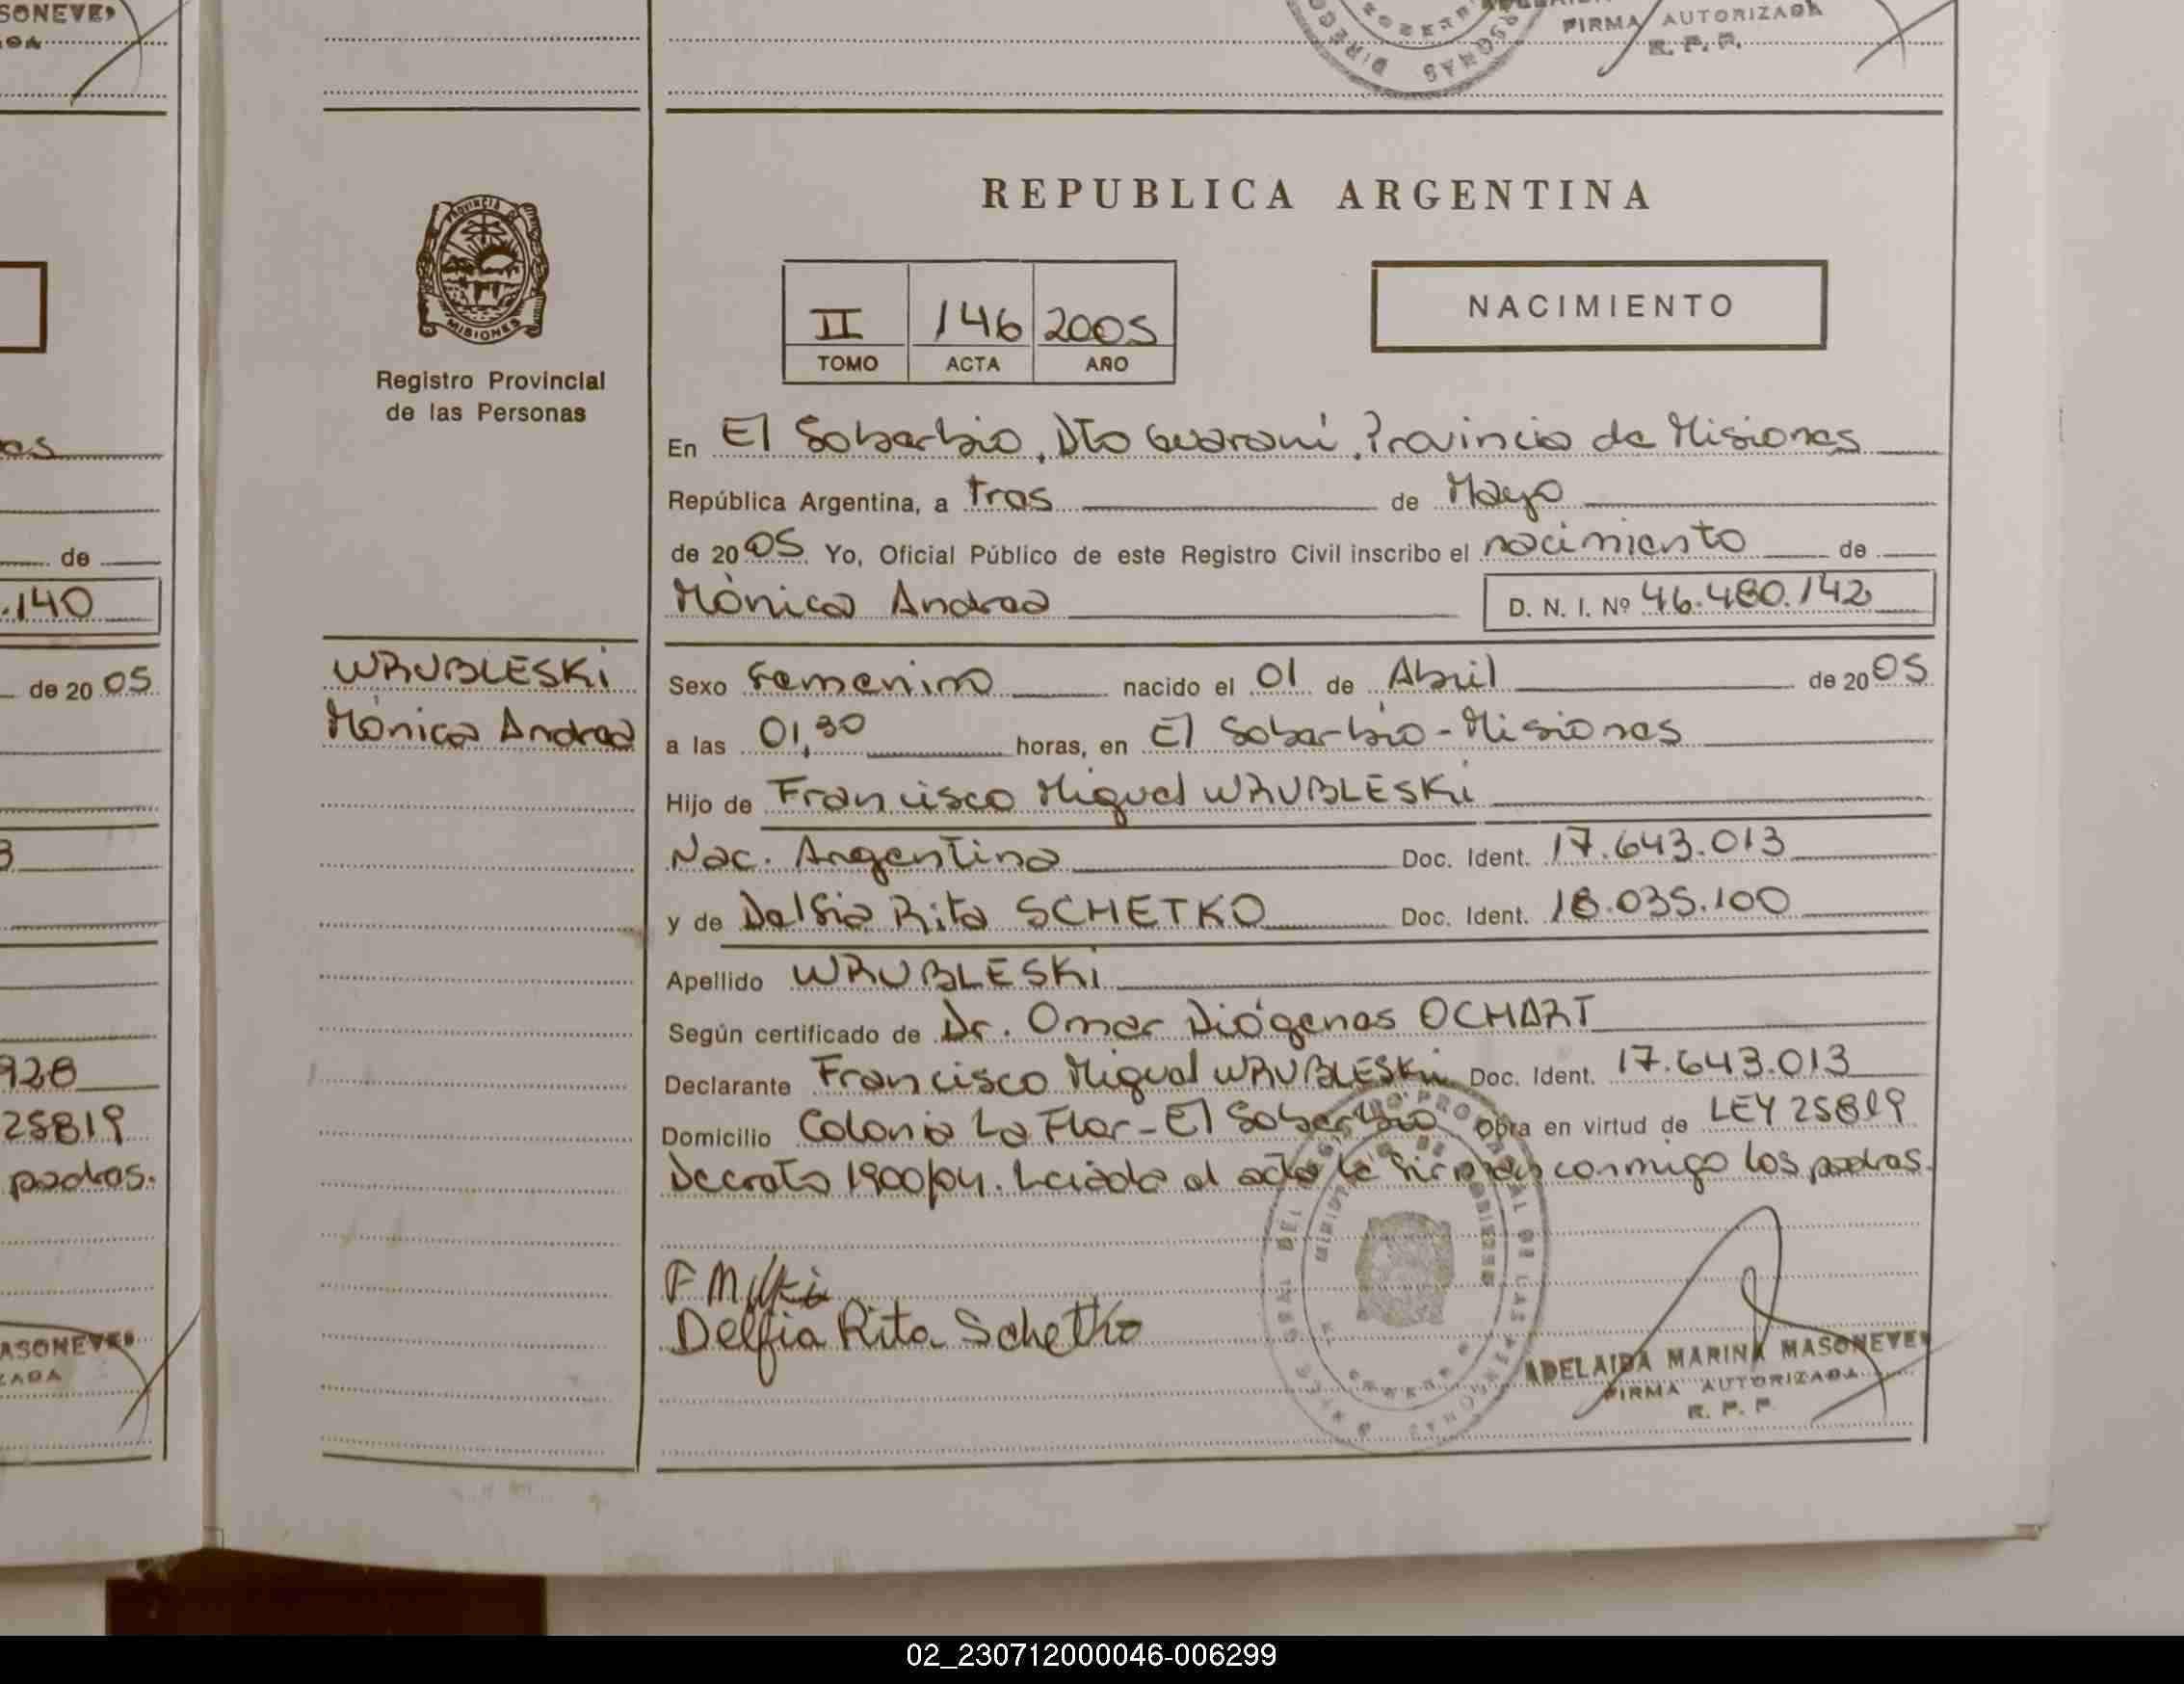 SONEVE
FIRMA AUTORIZADA
R. P. P.
REPUBLICA ARGENTINA
PROVINCIA DE
MISIONES
Registro Provincial
de las Personas
II 146 2005
TOMO ACTA AÑO
NACIMIENTO
En El Soberbio, Dto Guaraní, Provincia de Misiones
República Argentina, a tres de Mayo
de 2005 Yo, Oficial Público de este Registro Civil inscribo el nacimiento de
Mónica Andrea D. N. I. Nº 46.480.142
WRUBLESKi
Mónica Andrea
Sexo Femenino nacido el 01 de Abril de 2005
a las 01,30 horas, en El Soberbio - Misiones
Hijo de Francisco Miguel WRUBLESKi
Nac. Argentina Doc. Ident. 17.643.013
y de Delfia Rita SCHETKO Doc. Ident. 18.035.100
Apellido WRUBLESKi
Según certificado de Dr. Omar Diógenes OCHART
Declarante Francisco Miguel WRUBLESKi Doc. Ident. 17.643.013
Domicilio Colonia La Flor - El Soberbio Obra en virtud de LEY 25819
Decreto 1900/04. Leída el acta la firman conmigo los padres.
Delfia Rita Schetko
ADELAIDA MARINA MASONEVE
FIRMA AUTORIZADA
R. P. P.
de
.140
de 20 05
928
25819
padres.
ASONEVE
ZADA
02_230712000046-006299